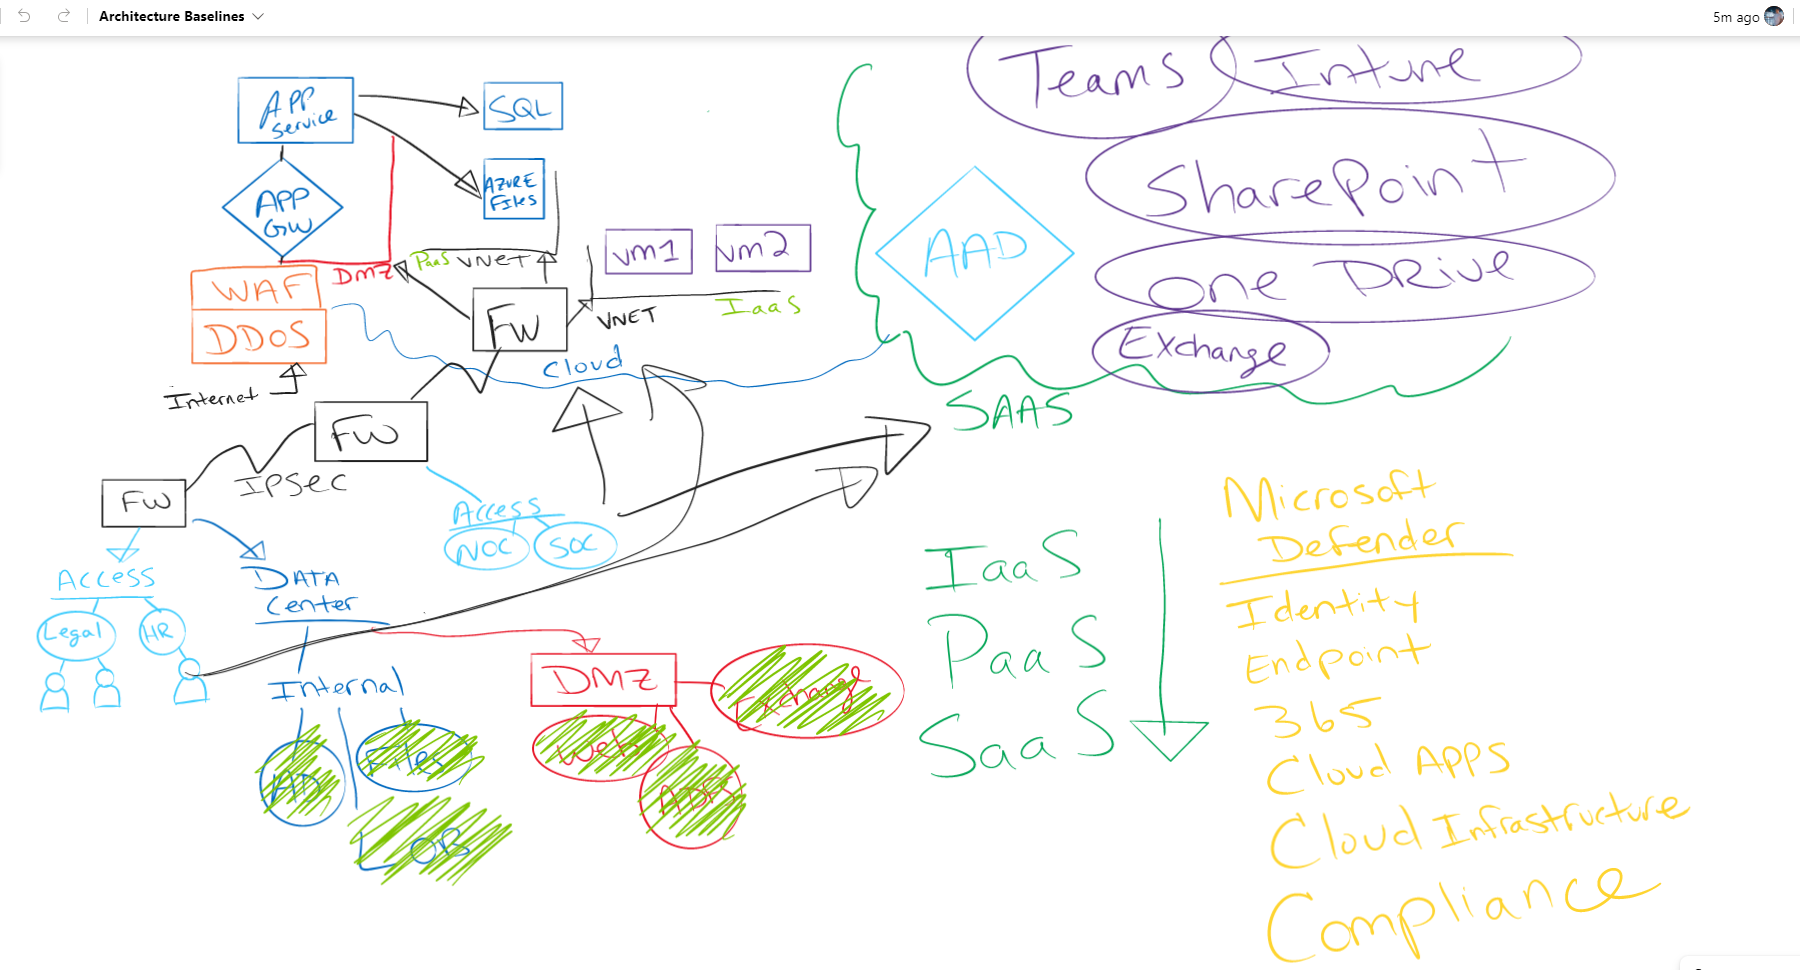 Architecture Baselines
5m ago
APP
Service
SQL
AZURE
Files
APP
GW
WAF
DDOS
Internet
DMZ
PaaS VNET
FW
vm1
vm2
VNET
IaaS
Cloud
FW
IPSEC
FW
Access
NOC
SOC
Access
Legal
HR
DATA
Center
Internal
AD
Files
LOB
DMZ
Exchange
Web
ADFS
Teams
Intune
SharePoint
One DRive
Exchange
AAD
SAAS
IaaS
PaaS
SaaS
Microsoft
Defender
Identity
Endpoint
365
Cloud APPS
Cloud Infrastructure
Compliance